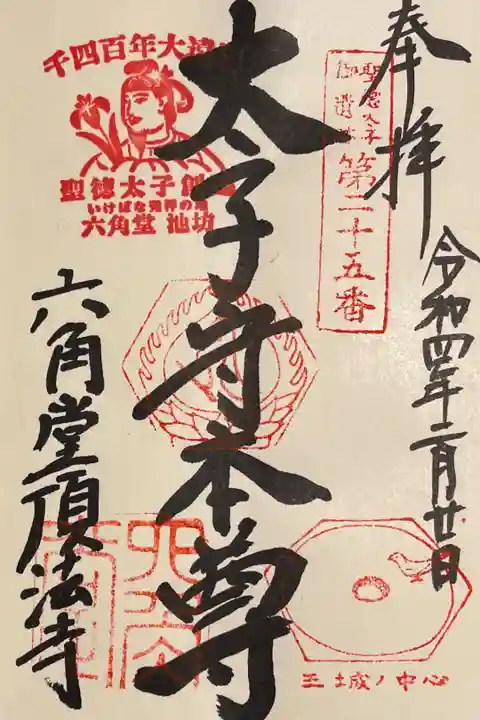 奉拝
令和四年二月廿日
聖徳太子
御遺跡
第二十五番
太子守本尊
千四百年大遠
聖徳太子創
いけばな発祥の地
六角堂 池坊
六角堂頂法寺
王城ノ中心